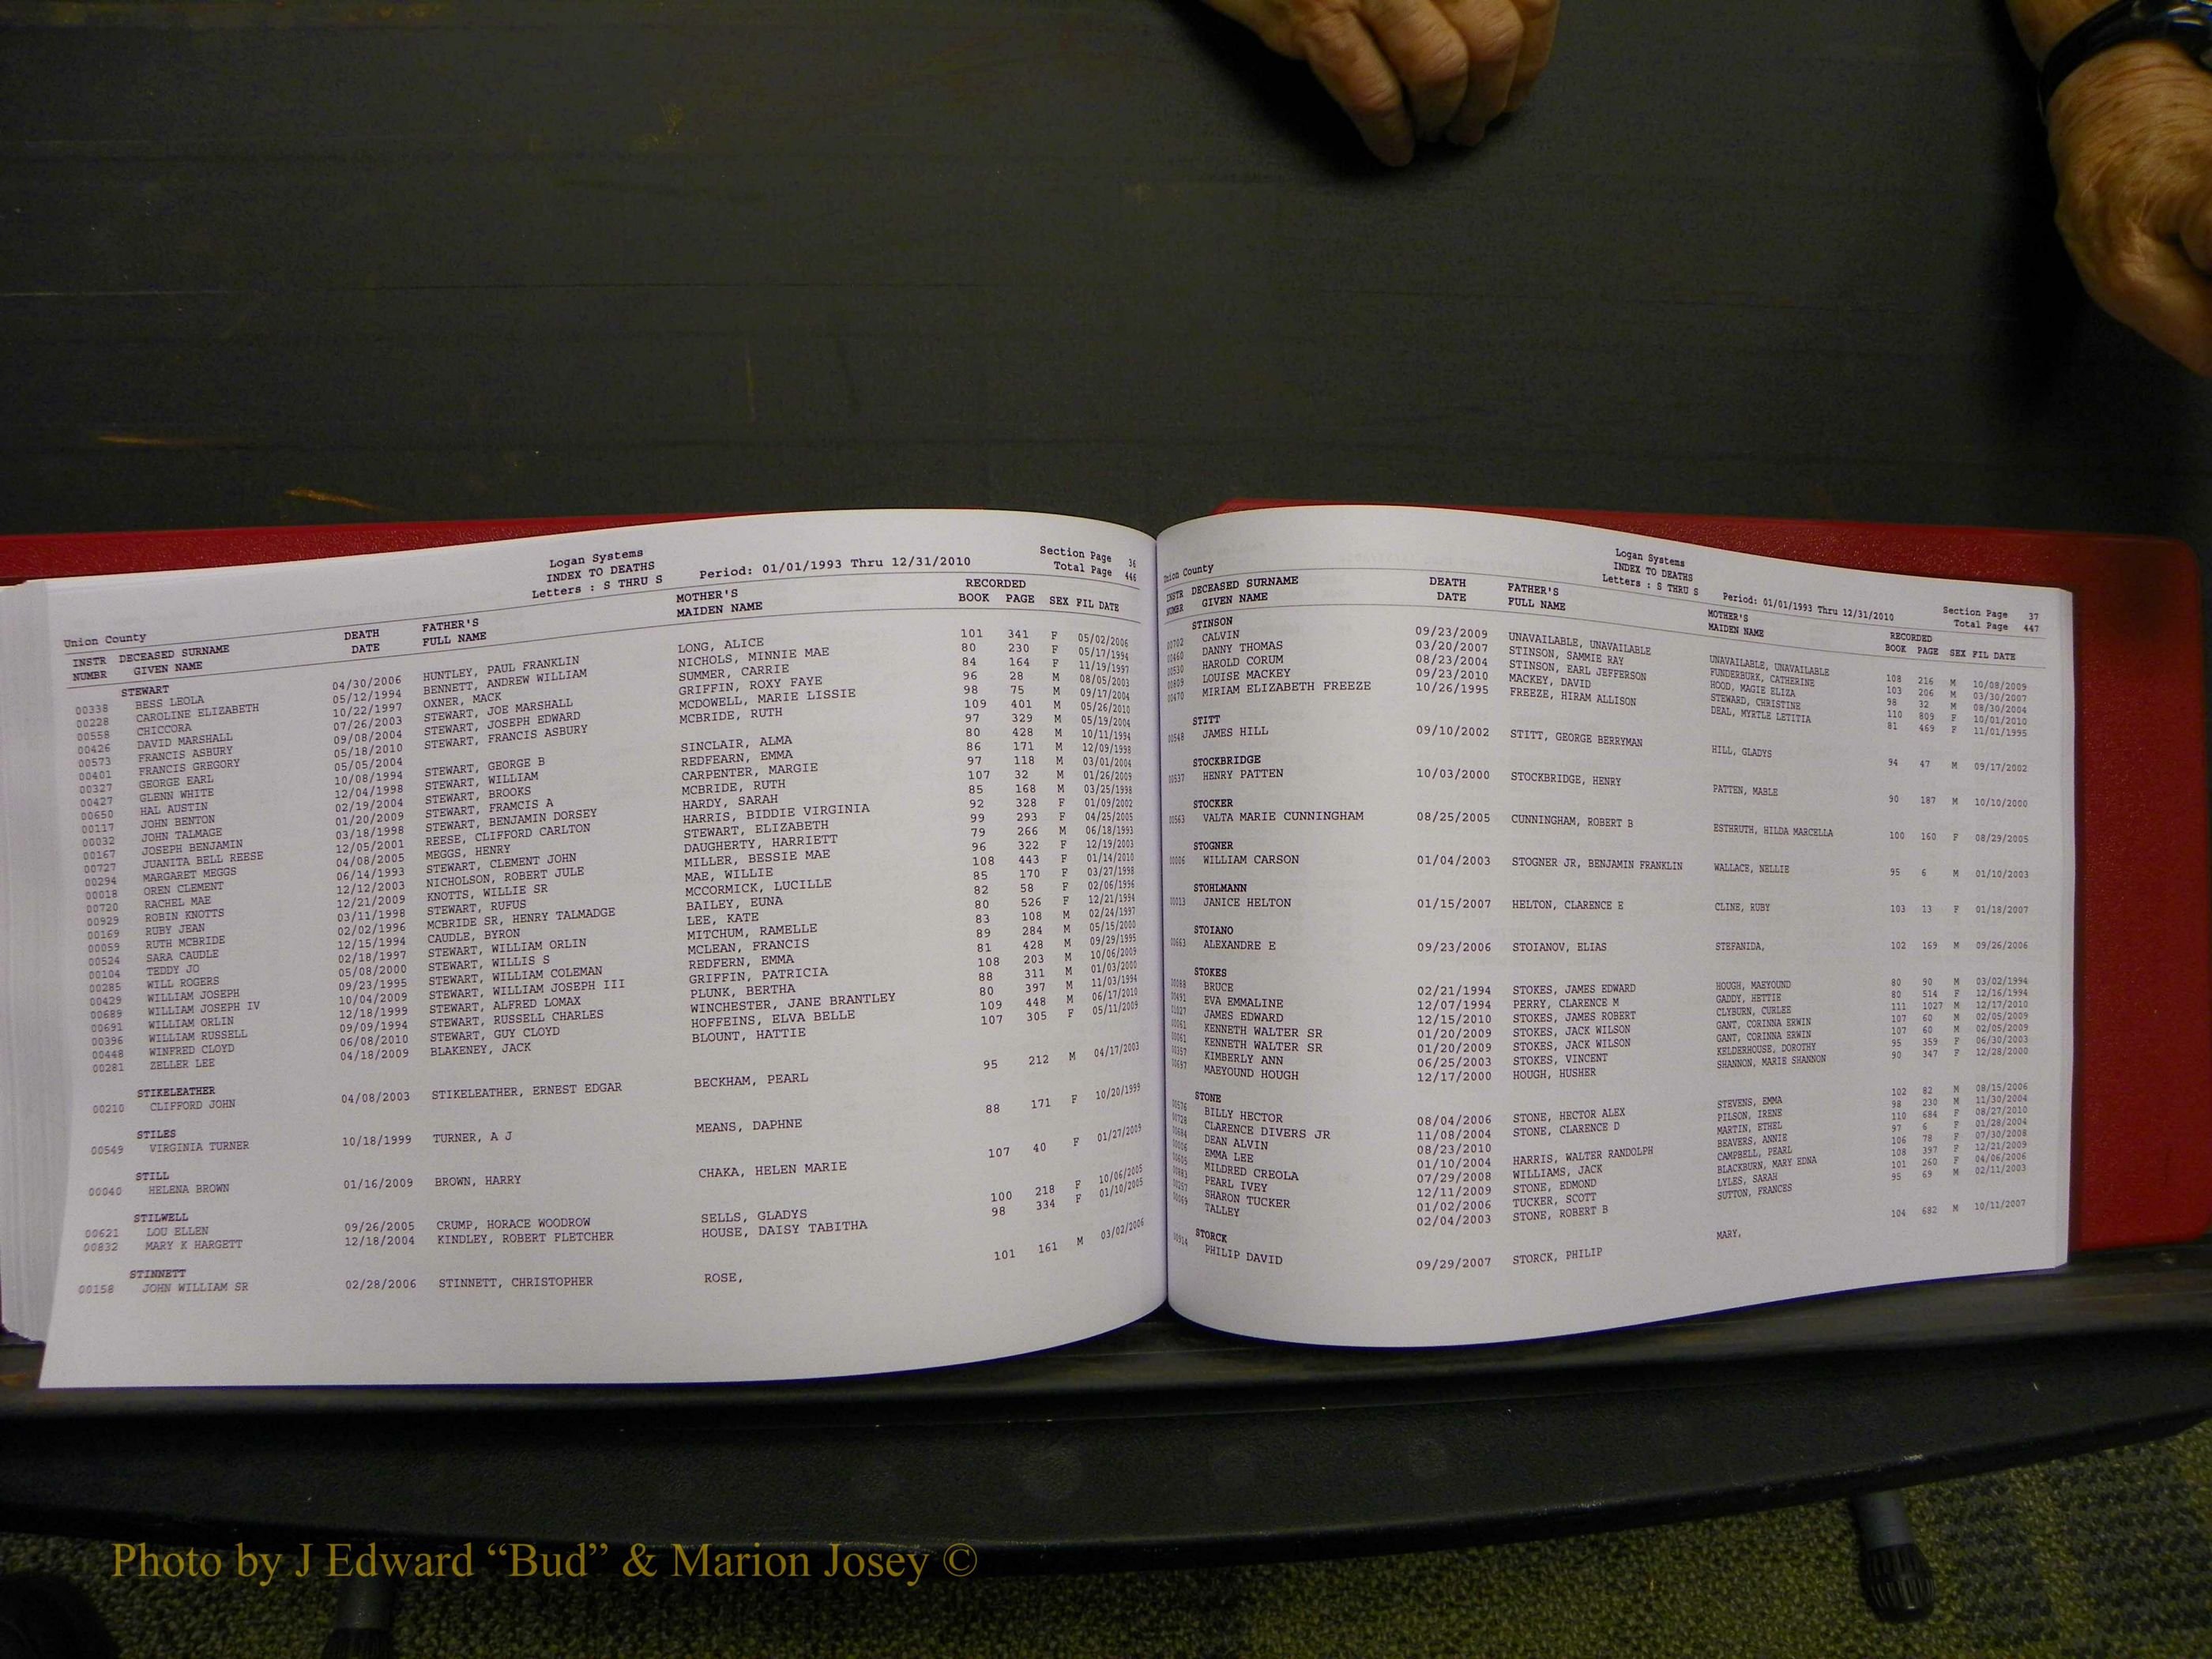 Union County
Logan Systems
INDEX TO DEATHS
Letters : S THRU S
Period: 01/01/1993 Thru 12/31/2010
Section Page 36
Total Page 446
INSTR DECEASED SURNAME DEATH FATHER'S MOTHER'S RECORDED
NUMBR GIVEN NAME DATE FULL NAME MAIDEN NAME BOOK PAGE SEX FIL DATE
STEWART
00338 BESS LEOLA 04/30/2006 HUNTLEY, PAUL FRANKLIN LONG, ALICE 101 341 F 05/02/2006
00228 CAROLINE ELIZABETH 05/12/1994 BENNETT, ANDREW WILLIAM NICHOLS, MINNIE MAE 80 230 F 05/17/1994
00558 CHICCORA 10/22/1997 OXNER, MACK SUMMER, CARRIE 84 164 F 11/19/1997
00426 DAVID MARSHALL 07/26/2003 STEWART, JOE MARSHALL GRIFFIN, ROXY FAYE 96 28 M 08/05/2003
00573 FRANCIS ASBURY 09/08/2004 STEWART, JOSEPH EDWARD MCDOWELL, MARIE LISSIE 98 75 M 09/17/2004
00401 FRANCIS GREGORY 05/18/2010 STEWART, FRANCIS ASBURY MCBRIDE, RUTH 109 401 M 05/26/2010
00327 GEORGE EARL 05/05/2004 97 329 M 05/19/2004
00427 GLENN WHITE 10/08/1994 STEWART, GEORGE B SINCLAIR, ALMA 80 428 M 10/11/1994
00650 HAL AUSTIN 12/04/1998 STEWART, WILLIAM REDFEARN, EMMA 86 171 M 12/09/1998
00117 JOHN BENTON 02/19/2004 STEWART, BROOKS CARPENTER, MARGIE 97 118 M 03/01/2004
00032 JOHN TALMAGE 01/20/2009 STEWART, FRAMCIS A MCBRIDE, RUTH 107 32 M 01/26/2009
00167 JOSEPH BENJAMIN 03/18/1998 STEWART, BENJAMIN DORSEY HARDY, SARAH 85 168 M 03/25/1998
00727 JUANITA BELL REESE 12/05/2001 REESE, CLIFFORD CARLTON HARRIS, BIDDIE VIRGINIA 92 328 F 01/09/2002
00294 MARGARET MEGGS 04/08/2005 MEGGS, HENRY STEWART, ELIZABETH 99 293 F 04/25/2005
00018 OREN CLEMENT 06/14/1993 STEWART, CLEMENT JOHN DAUGHERTY, HARRIETT 79 266 M 06/18/1993
00720 RACHEL MAE 12/12/2003 NICHOLSON, ROBERT JULE MILLER, BESSIE MAE 96 322 F 12/19/2003
00929 ROBIN KNOTTS 12/21/2009 KNOTTS, WILLIE SR MAE, WILLIE 108 443 F 01/14/2010
00169 RUBY JEAN 03/11/1998 STEWART, RUFUS MCCORMICK, LUCILLE 85 170 F 03/27/1998
00059 RUTH MCBRIDE 02/02/1996 MCBRIDE SR, HENRY TALMADGE BAILEY, EUNA 82 58 F 02/06/1996
00524 SARA CAUDLE 12/15/1994 CAUDLE, BYRON LEE, KATE 80 526 F 12/21/1994
00104 TEDDY JO 02/18/1997 STEWART, WILLIAM ORLIN MITCHUM, RAMELLE 83 108 M 02/24/1997
00285 WILL ROGERS 05/08/2000 STEWART, WILLIS S MCLEAN, FRANCIS 89 284 M 05/15/2000
00429 WILLIAM JOSEPH 09/23/1995 STEWART, WILLIAM COLEMAN REDFERN, EMMA 81 428 M 09/29/1995
00689 WILLIAM JOSEPH IV 10/04/2009 STEWART, WILLIAM JOSEPH III GRIFFIN, PATRICIA 108 203 M 10/06/2009
00691 WILLIAM ORLIN 12/18/1999 STEWART, ALFRED LOMAX PLUNK, BERTHA 88 311 M 01/03/2000
00396 WILLIAM RUSSELL 09/09/1994 STEWART, RUSSELL CHARLES WINCHESTER, JANE BRANTLEY 80 397 M 11/03/1994
00448 WINFRED CLOYD 06/08/2010 STEWART, GUY CLOYD HOFFEINS, ELVA BELLE 109 448 M 06/17/2010
00281 ZELLER LEE 04/18/2009 BLAKENEY, JACK BLOUNT, HATTIE 107 305 F 05/11/2009
STIKELEATHER
00210 CLIFFORD JOHN 04/08/2003 STIKELEATHER, ERNEST EDGAR BECKHAM, PEARL 95 212 M 04/17/2003
STILES
00549 VIRGINIA TURNER 10/18/1999 TURNER, A J MEANS, DAPHNE 88 171 F 10/20/1999
STILL
00040 HELENA BROWN 01/16/2009 BROWN, HARRY CHAKA, HELEN MARIE 107 40 F 01/27/2009
STILWELL
00621 LOU ELLEN 09/26/2005 CRUMP, HORACE WOODROW SELLS, GLADYS 100 218 F 10/06/2005
00832 MARY K HARGETT 12/18/2004 KINDLEY, ROBERT FLETCHER HOUSE, DAISY TABITHA 98 334 F 01/10/2005
STINNETT
00158 JOHN WILLIAM SR 02/28/2006 STINNETT, CHRISTOPHER ROSE, 101 161 M 03/02/2006
Union County
Logan Systems
INDEX TO DEATHS
Letters : S THRU S
Period: 01/01/1993 Thru 12/31/2010
Section Page 37
Total Page 447
INSTR DECEASED SURNAME DEATH FATHER'S MOTHER'S RECORDED
NUMBR GIVEN NAME DATE FULL NAME MAIDEN NAME BOOK PAGE SEX FIL DATE
STINSON
00702 CALVIN 09/23/2009 UNAVAILABLE, UNAVAILABLE UNAVAILABLE, UNAVAILABLE 108 216 M 10/08/2009
00460 DANNY THOMAS 03/20/2007 STINSON, SAMMIE RAY FUNDERBURK, CATHERINE 103 206 M 03/30/2007
00530 HAROLD CORUM 08/23/2004 STINSON, EARL JEFFERSON HOOD, MAGIE ELIZA 98 32 M 08/30/2004
00809 LOUISE MACKEY 09/23/2010 MACKEY, DAVID STEWARD, CHRISTINE 110 809 F 10/01/2010
00470 MIRIAM ELIZABETH FREEZE 10/26/1995 FREEZE, HIRAM ALLISON DEAL, MYRTLE LETITIA 81 469 F 11/01/1995
STITT
00548 JAMES HILL 09/10/2002 STITT, GEORGE BERRYMAN HILL, GLADYS 94 47 M 09/17/2002
STOCKBRIDGE
00537 HENRY PATTEN 10/03/2000 STOCKBRIDGE, HENRY PATTEN, MABLE 90 187 M 10/10/2000
STOCKER
00563 VALTA MARIE CUNNINGHAM 08/25/2005 CUNNINGHAM, ROBERT B ESTHRUTH, HILDA MARCELLA 100 160 F 08/29/2005
STOGNER
00006 WILLIAM CARSON 01/04/2003 STOGNER JR, BENJAMIN FRANKLIN WALLACE, NELLIE 95 6 M 01/10/2003
STOHLMANN
00013 JANICE HELTON 01/15/2007 HELTON, CLARENCE E CLINE, RUBY 103 13 F 01/18/2007
STOIANO
00663 ALEXANDRE E 09/23/2006 STOIANOV, ELIAS STEFANIDA, 102 169 M 09/26/2006
STOKES
00088 BRUCE 02/21/1994 STOKES, JAMES EDWARD HOUGH, MAEYOUND 80 90 M 03/02/1994
00491 EVA EMMALINE 12/07/1994 PERRY, CLARENCE M GADDY, HETTIE 80 514 F 12/16/1994
01027 JAMES EDWARD 12/15/2010 STOKES, JAMES ROBERT CLYBURN, CURLEE 111 1027 M 12/17/2010
00061 KENNETH WALTER SR 01/20/2009 STOKES, JACK WILSON GANT, CORINNA ERWIN 107 60 M 02/05/2009
00061 KENNETH WALTER SR 01/20/2009 STOKES, JACK WILSON GANT, CORINNA ERWIN 107 60 M 02/05/2009
00357 KIMBERLY ANN 06/25/2003 STOKES, VINCENT KELDERHOUSE, DOROTHY 95 359 F 06/30/2003
00697 MAEYOUND HOUGH 12/17/2000 HOUGH, HUSHER SHANNON, MARIE SHANNON 90 347 F 12/28/2000
STONE
00576 BILLY HECTOR 08/04/2006 STONE, HECTOR ALEX STEVENS, EMMA 102 82 M 08/15/2006
00728 CLARENCE DIVERS JR 11/08/2004 STONE, CLARENCE D PILSON, IRENE 98 230 M 11/30/2004
00684 DEAN ALVIN 08/23/2010 MARTIN, ETHEL 110 684 F 08/27/2010
00006 EMMA LEE 01/10/2004 HARRIS, WALTER RANDOLPH BEAVERS, ANNIE 97 6 F 01/28/2004
00605 MILDRED CREOLA 07/29/2008 WILLIAMS, JACK CAMPBELL, PEARL 106 78 F 07/30/2008
00883 PEARL IVEY 12/11/2009 STONE, EDMOND BLACKBURN, MARY EDNA 108 397 F 12/21/2009
00257 SHARON TUCKER 01/02/2006 TUCKER, SCOTT LYLES, SARAH 101 260 F 04/06/2006
00069 TALLEY 02/04/2003 STONE, ROBERT B SUTTON, FRANCES 95 69 M 02/11/2003
STORCK
00914 PHILIP DAVID 09/29/2007 STORCK, PHILIP MARY, 104 682 M 10/11/2007
Photo by J Edward “Bud” & Marion Josey ©